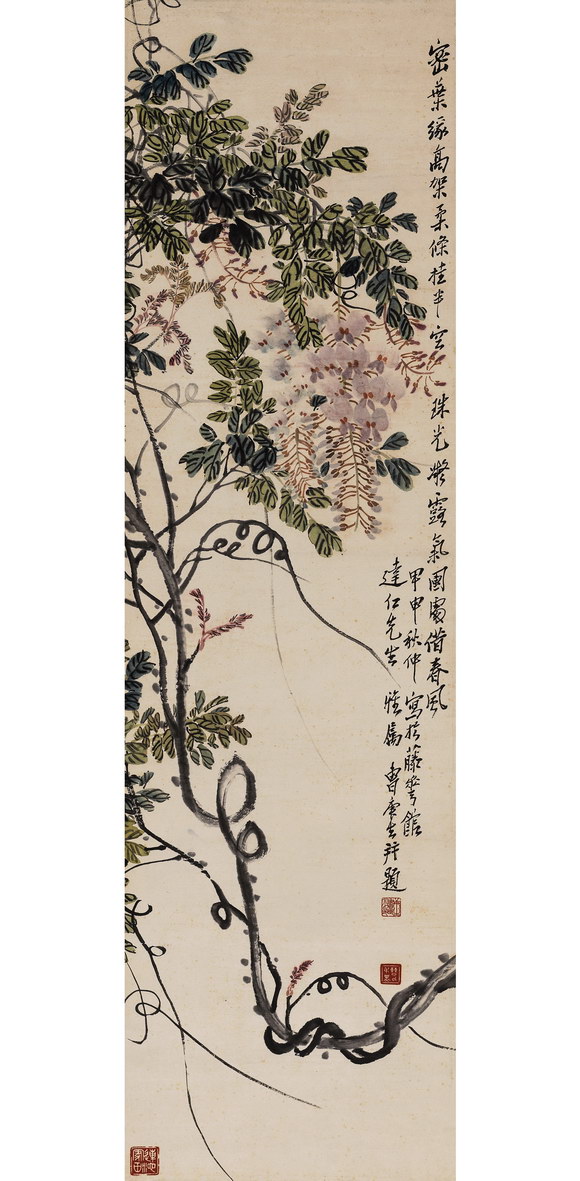 密葉緣高架柔條桂半空珠光凝露氣團團借春風
甲申秋仲寫於藤花館
達仁先生雅屬曹生并題